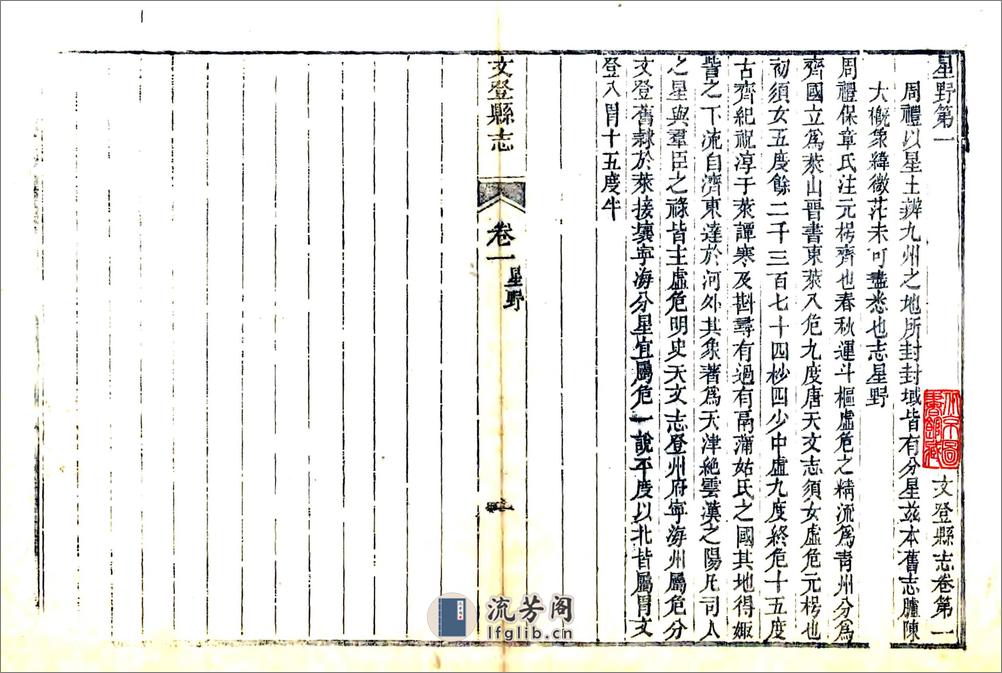 星野第一 文登縣志卷第一
周禮以星土辨九州之地所封封域皆有分星茲本舊志臚陳
大槪象緯微茫未可盡悉也志星野
周禮保章氏注元枵齊也春秋運斗樞虛危之精流爲青州分爲
齊國立爲萊山晉書東萊入危九度唐天文志須女虛危元枵也
初須女五度餘二千三百七十四杪四少中虛九度終危十五度
古齊紀祝淳于萊譚寒及斟尋有過有鬲蒲姑氏之國其地得娵
訾之下流自濟東達於河外其象著爲天津絶雲漢之陽凡司人
之星與羣臣之祿皆主虛危明史天文志登州府寧海州屬危分
文登舊隸於萊接壤寧海分星宜屬危一說平度以北皆屬胃文
登入胃十五度牛
文登縣志 卷一 星野
流芳阁
lfglib.cn